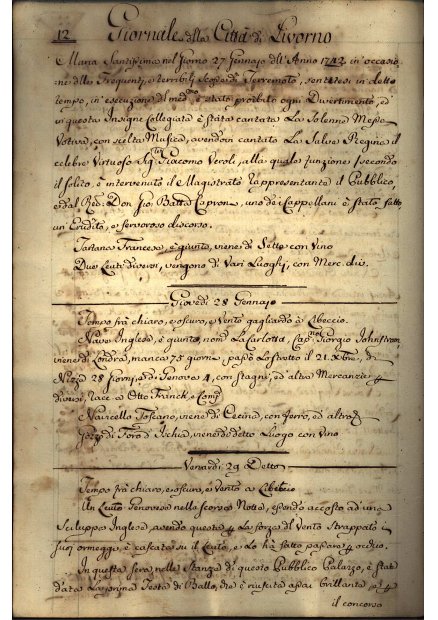 12 Giornale della Città di Livorno
Maria Santissima nel giorno 27 Gennajo dell' Anno 1742 in occasio-
ne delle Frequenti, e terribili Scosse di Terremoto, sentitesi in detto
tempo, in esecuzione del med.mo è stato proibito ogni Divertimento, ed
in questa Insigne Collegiata è stata cantata La Solenne Messa
Votiva, con scielta Musica, avendovi cantato La Salve Regina il
celebre Virtuoso Sig. Giacomo Veroli, alla quale funzione secondo
il solito, è intervenuto il Magistrato Rappresentante il Pubblico,
e dal Rev. Don Gio: Batta Caprona, uno de i Cappellani è stato fatto
un Erudito, e fervoroso discorso.
Tartana Francese, è giunta, viene di Sette con Vino
Due Leuti diversi, vengono di Vari Luoghi, con Merc. div.
Giovedì 28 Gennajo
Tempo frà chiaro, e oscuro, e Vento gagliardo à Libeccio.
Nave Inglese, è giunta, nom. La Carlotta, Cap. Giorgio Johnstron,
viene di Londra, manca 75 giorni, passò Lo stretto il 21. Xbre, di
Nizza 28 giorni, e di Genova 4, con stagni, ed altre Mercanzie
diversi, racc. a Otto Franck, e Comp.
Navicello Toscano, viene di Cecina, con ferro, ed altro
Gozzi di Foro d'Ischia, viene dè detto Luogo con Vino
Venerdì 29 Detto
Tempo frà chiaro, e oscuro, e Vento a Libeccio
Un Leuto Genovese nella scorsa Notte, essendo accosto ad una
Scialuppa Inglese, avendo questa La forza del Vento Strappato i
suoi ormeggi, è cascata su il Leuto, e Lo hà fatto passare occhio.
In questa sera, nelle Stanze di questo Pubblico Palazzo, è stat
data La prima Festa di Ballo, che è riuscita assai brillante
il concorso